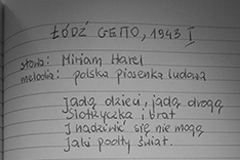 ŁÓDŹ GETTO, 1943 I
słowa: Miriam Harel
melodia: polska piosenka ludowa
Jadą dzieci, jadą drogą
Siostrzyczka i brat
I nadziwić się nie mogą
Jaki podły świat.